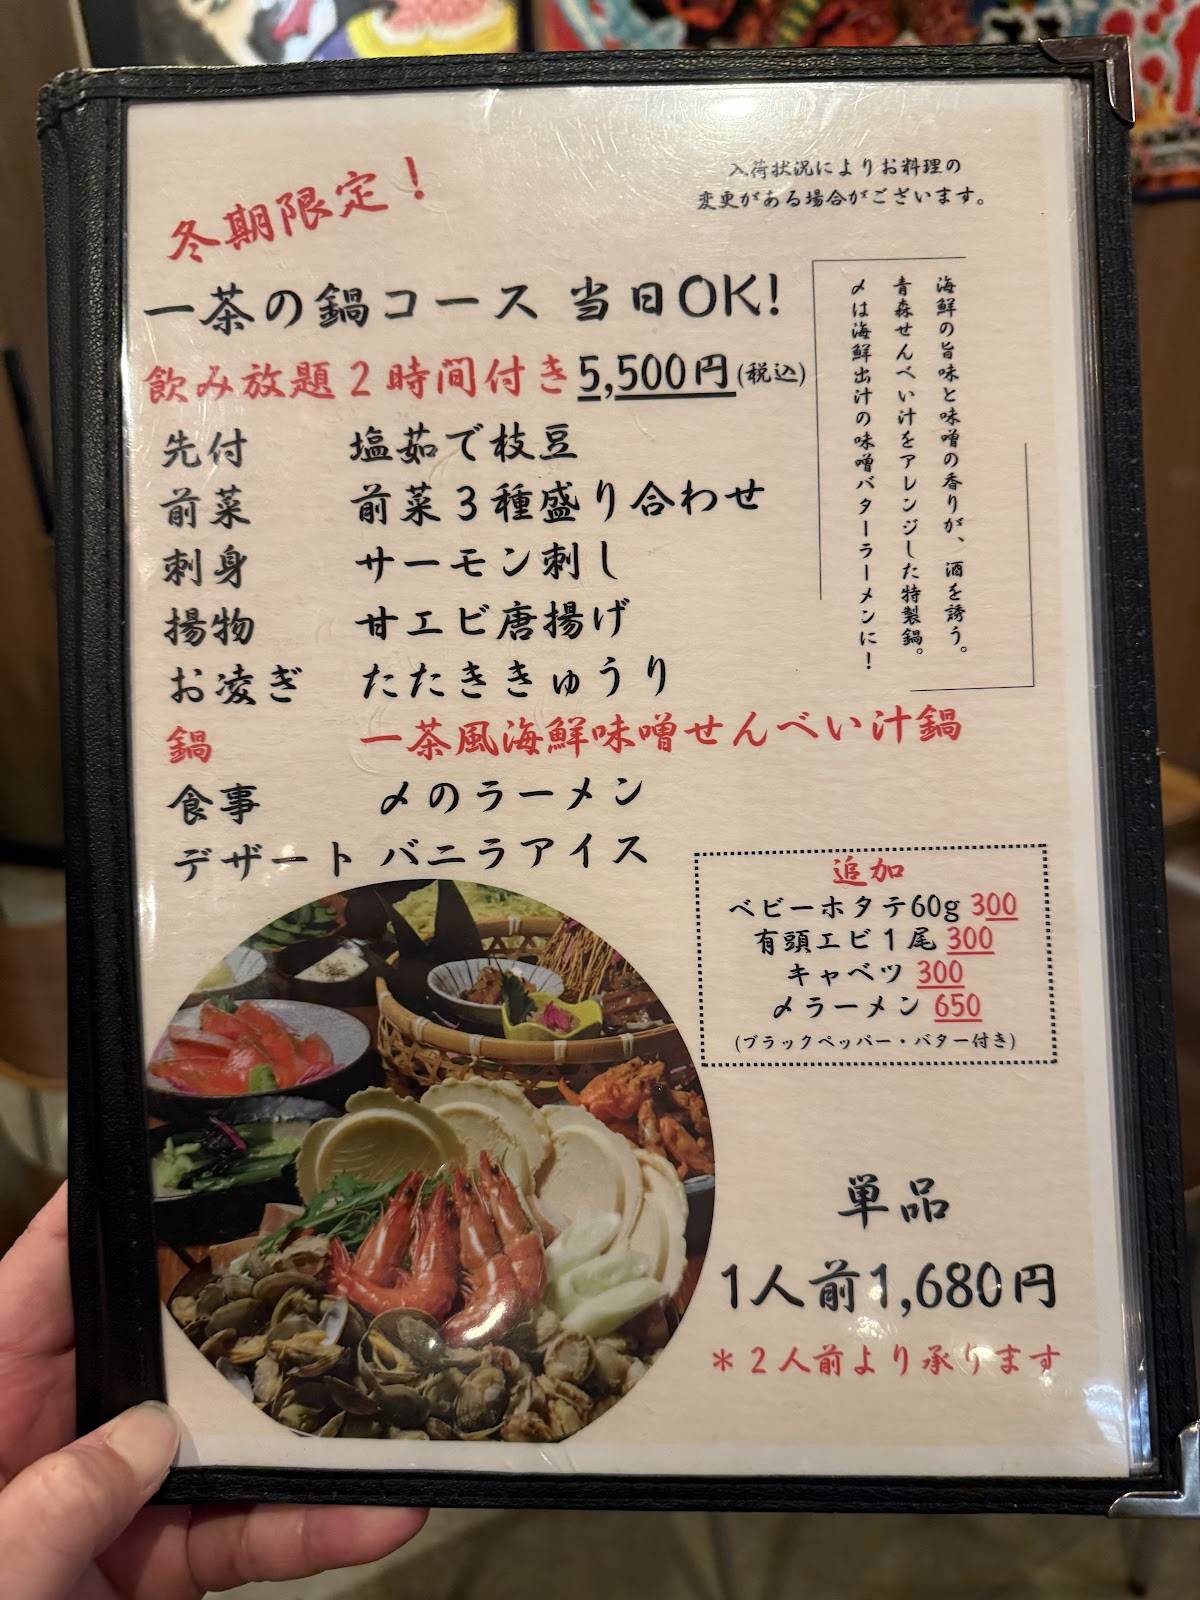 冬期限定!
入荷状況によりお料理の
変更がある場合がございます。
一茶の鍋コース 当日OK!
飲み放題2時間付き5,500円(税込)
海鮮の旨味と味噌の香りが、酒を誘う。
青森せんべい汁をアレンジした特製鍋。
〆は海鮮出汁の味噌バターラーメンに!
先付 塩茹で枝豆
前菜 前菜3種盛り合わせ
刺身 サーモン刺し
揚物 甘エビ唐揚げ
お凌ぎ たたききゅうり
鍋 一茶風海鮮味噌せんべい汁鍋
食事 〆のラーメン
デザート バニラアイス
追加
ベビーホタテ60g 300
有頭エビ1尾 300
キャベツ 300
〆ラーメン 650
(ブラックペッパー・バター付き)
単品
1人前1,680円
*2人前より承ります